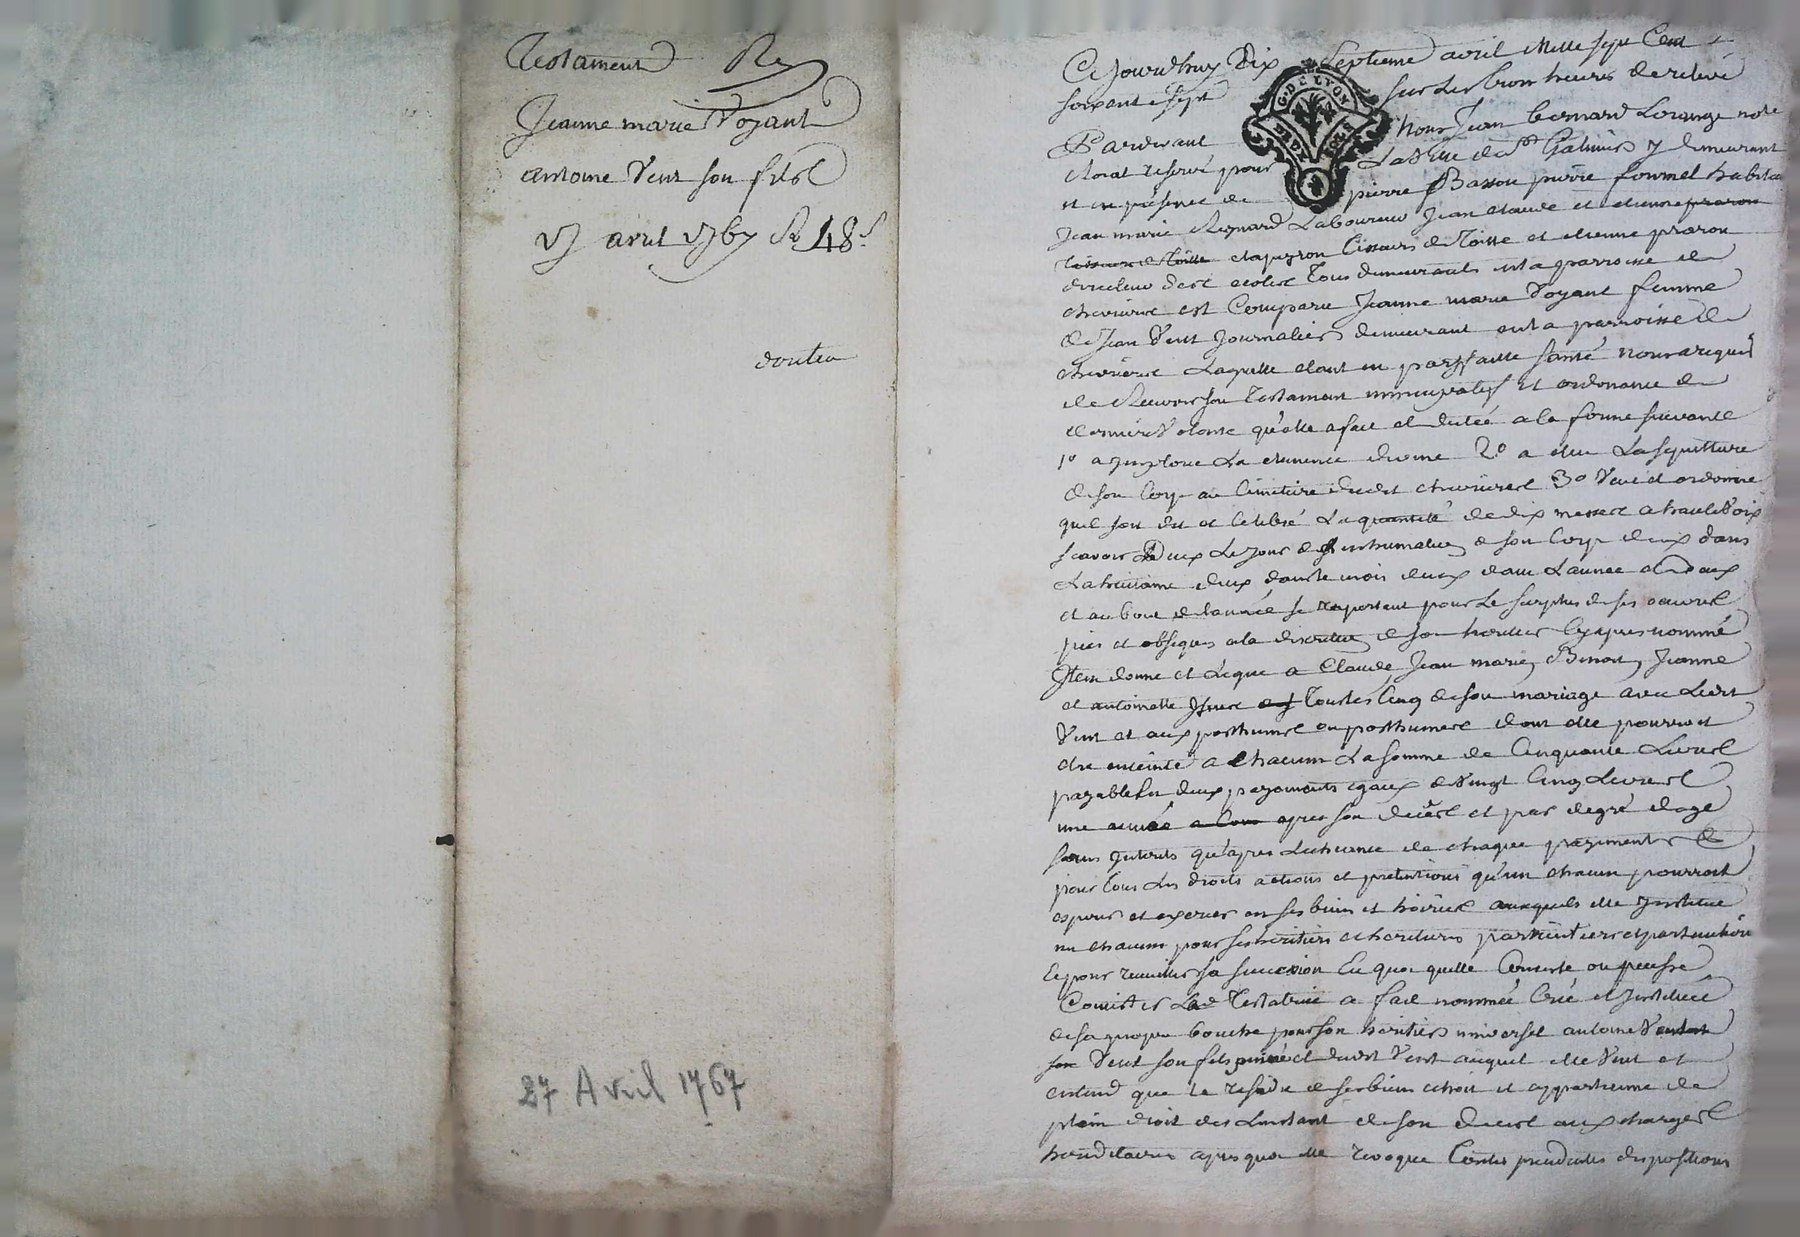 Testament
Jeanne marie Voyant
antoine Vent son fils
17 avril 1767 48 s
douteu
27 Avril 1767
G. DE LYON
Ce jourdhuy Dix Septieme avril Mille sept Cent
soixante sept sur les trois heures de relevé
Pardevant Nous Jean bernard Lorange note
Royal reservé pour La Ville de St Galmier y demeurant
et en présence de pierre Basson pierre fournel habitan
Jean marie Reynard Laboureur Jean claude et etienne praron
tisseur de Toille chapuyron tisseurs de Toille et etienne praron
demeurants en la parroisse de
chevriere est Comparu Jeanne marie Voyant femme
de Jean Vent Journalier demeurant en la parroisse de
chevriere Laquelle etant en parffaitte santé nous a requis
de Recevoir son Testament nuncupatif et ordonance de
derniere Volonté qu'elle a fait et dictée a la forme suivante
1o a imploré La clemence divine 2o a elu La sepulture
de son Corps au Cimetiere dudit chevrieres 3o Veut et ordonne
quil soit dit et Celebré La quantité de dix messes a haute Voix
scavoir Deux Le jour de L'inhumation de son Corps deux dans
La huitaine deux dans le mois deux dans L'année et Deux
et au bout de L'année se raportant pour Le surplus de ses oeuvres
pies et obseques a la discretion de son heritier Cy apres nommé
Item donne et Legue a Claude Jean marie, Benoit, Jeanne
et antoinette Issues Tous les Cinq de son mariage avec Ledit
Vent et aux posthumes ou posthumes dont elle pourroit
etre enceinte a Chacun La somme de Cinquante Livres
payable en deux payements egaux de Vingt Cinq Livres
une année apres son decès et par degré d'age
sans Interets qu'apres L'echeance de chaque payement
pour tous Les droits actions et pretentions qu'un chacun pourroit
esperer et exercer en ses biens et hoiries auxquels elle Institue
un chacun pour ses heritiers et heritieres particuliers
Et pour recueillir sa succession En quoi quelle Consiste ou puisse
Consister La de Testatrice a fait nommée Créé et Institué
de sa propre bouche pour son heritier universel antoine
Vent son fils et dudit Vent auquel elle Veut et
entend que le residu de ses biens echoit et appartienne de
plein droit des L'instant de son decès aux charges
hereditaires apres quoi elle revoque toutes precedentes dispositions